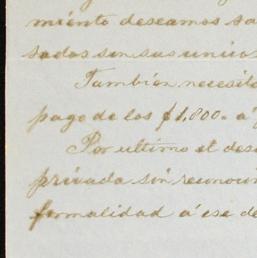 miento deseamos sa
sados son sus unico
Tambien necesita
pago de los $1,800. a
Por ultimo el des
privada sin reconoci
formalidad á ese de